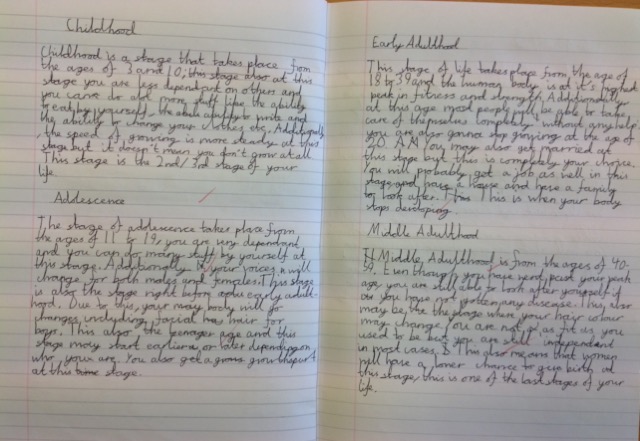 Childhood
Childhood is a stage that takes place from
the ages of 3 and 10, this stage also at this
stage you are less dependant on others and
you can do more stuff like the ability
to eat by yourself, the ability to write and
the ability to change your clothes etc. Additionally,
the speed of growing is more steady at this
stage but it doesn't mean you don't grow at all
This stage is the 2nd/3rd stage of your
life.
Addlescence
The stage of addlescence takes place from
the ages of 11 to 19, you are very dependant
and you can do many stuff by yourself at
this stage. Additionally your voices will
change for both males and females. This stage
is also the stage right before early adult-
hood. Due to this, your body will go
changes including facial hair for
boys. This also the teenager age and this
stage may start earlier or later depending on
who you are. You also get a growthspurt
at this stage.
Early Adulthood
This stage of life takes place from the age of
18 to 39 and the human body is at it's highest
peak in fitness and strength. Additionally,
at this age most people will be able to take
care of themselves completely without any help
you are also gonna stop growing at the age of
20. You may also get married at
this stage but this is completely your choice.
You will probably get a job as well in this
stage and have a house and have a family
to look after. This is when your body
stops developing.
Middle Adulthood
Middle Adulthood is from the ages of 40-
59. Even though you have past your peak
age, you are still able to look after yourself if
you have not gotten any disease. This also
may be the stage where your hair colour
may change. You are not as fit as you
used to be but you are still independent
in most cases. This also means that women
will have a lower chance to give birth at
this stage, this is one of the last stages of your
life.